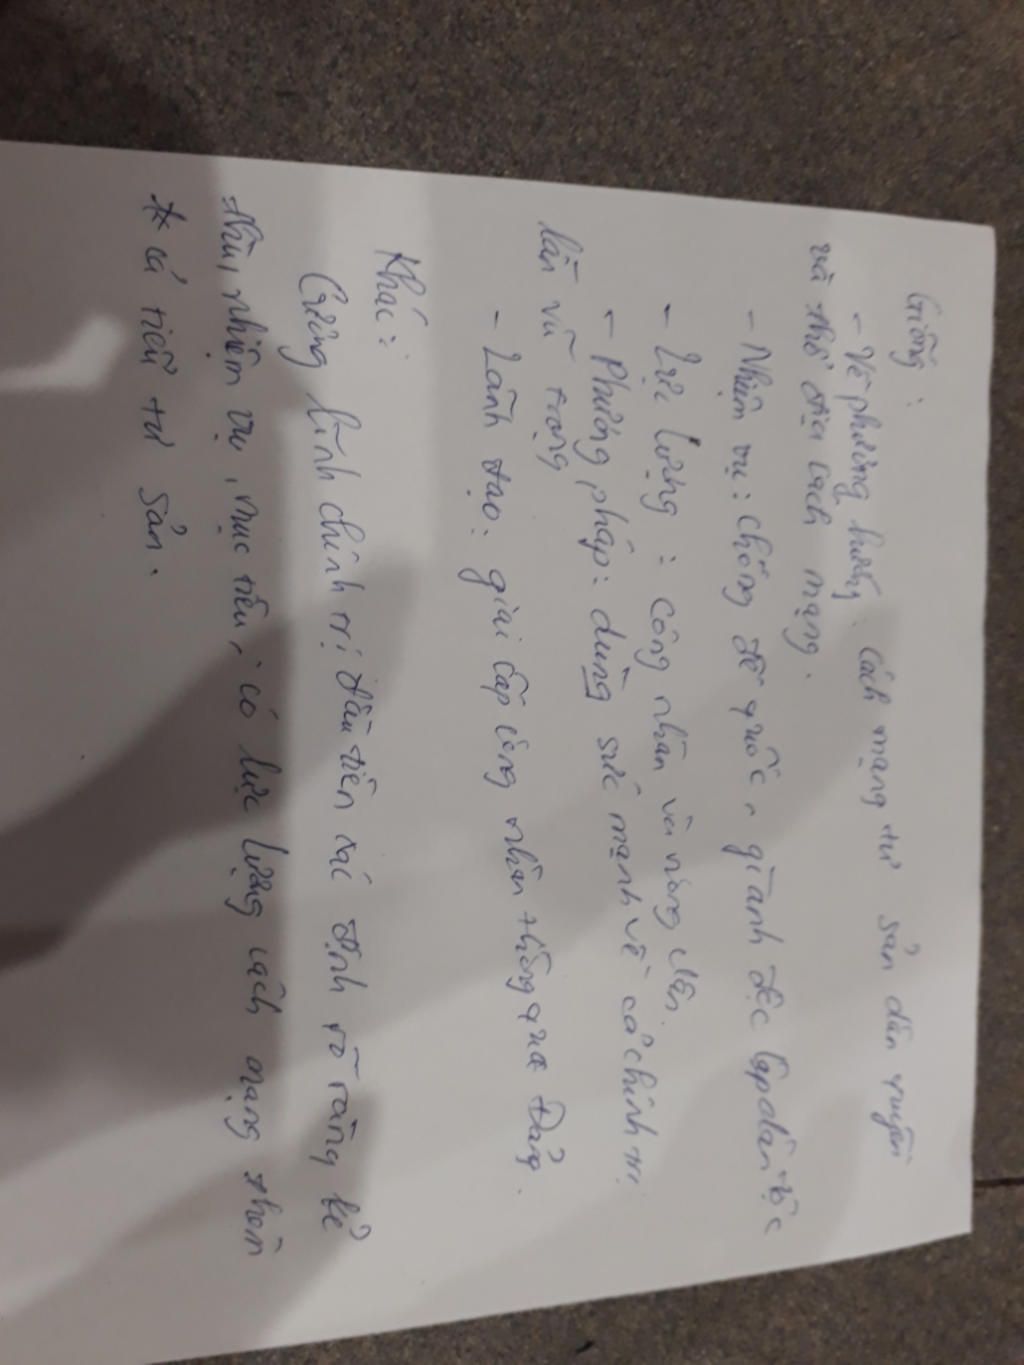 Giống:
- Về phương hướng: Cách mạng tư sản dân quyền
và thổ địa cách mạng.
- Nhiệm vụ: chống đế quốc, giành độc lập dân tộc
- Lực lượng: công nhân và nông dân.
- Phương pháp: dùng sức mạnh về cả chính trị
lẫn vũ trang
- Lãnh đạo: giai cấp công nhân thông qua Đảng.
Khác:
Cương lĩnh chính trị đầu tiên xác định rõ ràng kẻ
thù, nhiệm vụ, mục tiêu, có lực lượng cách mạng thêm
* cả tiểu tư sản.